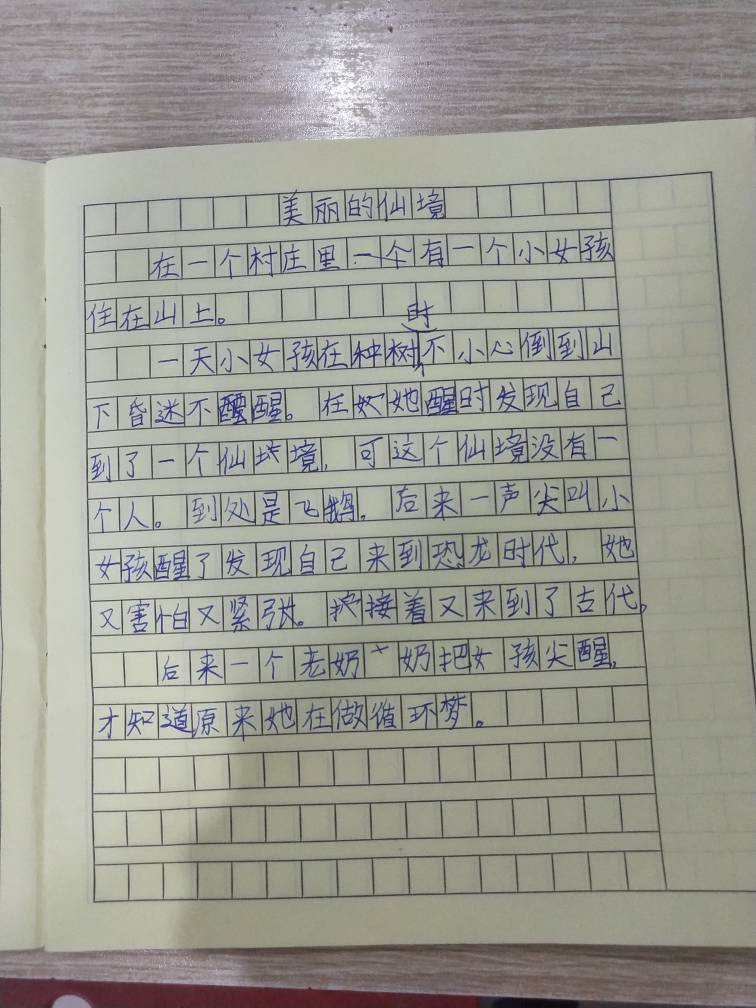 美丽的仙境
在一个村庄里有一个小女孩
住在山上。
一天小女孩在种树时不小心倒到山
下昏迷不醒。在她醒时发现自己
到了一个仙境，可这个仙境没有一
个人。到处是飞鹅。后来一声尖叫小
女孩醒了发现自己来到恐龙时代，她
又害怕又紧张。接着又来到了古代。
后来一个老奶奶把女孩尖醒，
才知道原来她在做循环梦。